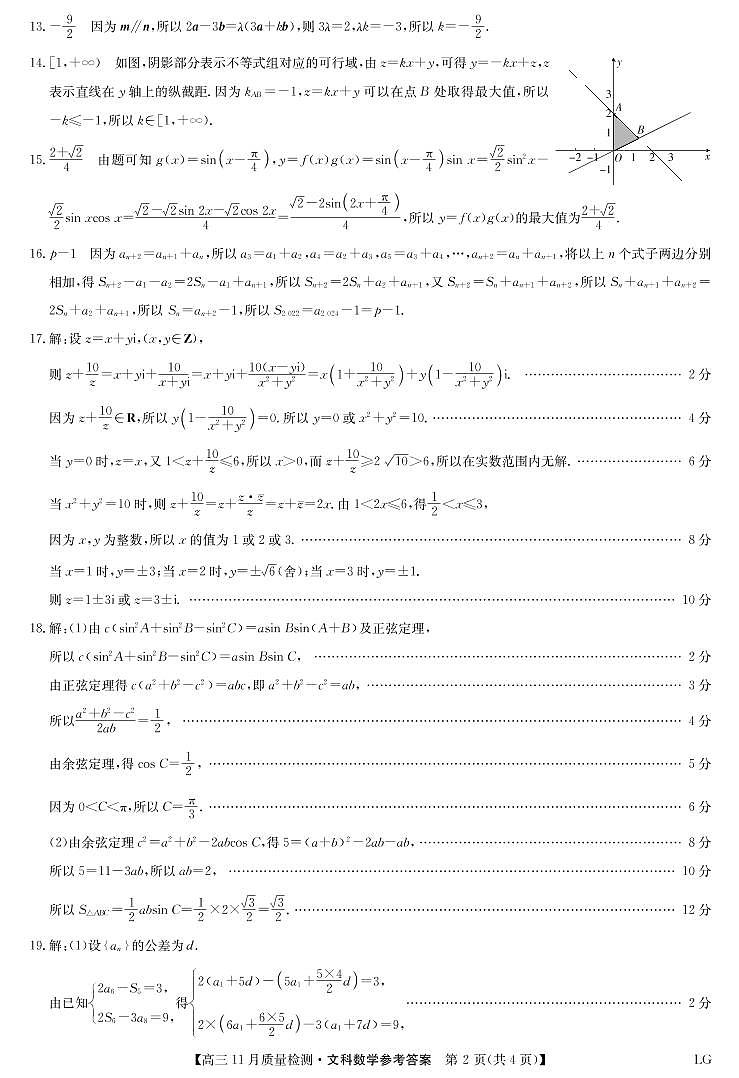 13. $-\frac{9}{2}$　因为 m∥n,所以 2a−3b=λ(3a+kb),则 3λ=2,λk=−3,所以 k=$-\frac{9}{2}$.
14. [1,+∞)　如图,阴影部分表示不等式组对应的可行域,由 z=kx+y,可得 y=−kx+z,z
表示直线在 y 轴上的纵截距.因为 $k_{AB}$=−1,z=kx+y 可以在点 B 处取得最大值,所以
−k≤−1,所以 k∈[1,+∞).
y
3
2
A
1
B
−2 −1 O 1 2 3 x
−1
15. $\frac{2+\sqrt{2}}{4}$　由题可知 g(x)=sin$\left(x-\frac{π}{4}\right)$,y=f(x)g(x)=sin$\left(x-\frac{π}{4}\right)$sin x=$\frac{\sqrt{2}}{2}$sin²x−
$\frac{\sqrt{2}}{2}$sin xcos x=$\frac{\sqrt{2}-\sqrt{2}\sin 2x-\sqrt{2}\cos 2x}{4}$=$\frac{\sqrt{2}-2\sin\left(2x+\frac{π}{4}\right)}{4}$,所以 y=f(x)g(x)的最大值为$\frac{2+\sqrt{2}}{4}$.
16. p−1　因为 $a_{n+2}=a_{n+1}+a_n$,所以 $a_3=a_1+a_2$,$a_4=a_2+a_3$,$a_5=a_3+a_4$,…,$a_{n+2}=a_n+a_{n+1}$,将以上 n 个式子两边分别
相加,得 $S_{n+2}-a_1-a_2=2S_n-a_1+a_{n+1}$,所以 $S_{n+2}=2S_n+a_2+a_{n+1}$,又 $S_{n+2}=S_n+a_{n+1}+a_{n+2}$,所以 $S_n+a_{n+1}+a_{n+2}=$
$2S_n+a_2+a_{n+1}$,所以 $S_n=a_{n+2}-1$,所以 $S_{2\,022}=a_{2\,024}-1=p-1$.
17. 解:设 z=x+yi,(x,y∈Z),
则 z+$\frac{10}{z}$=x+yi+$\frac{10}{x+yi}$=x+yi+$\frac{10(x-yi)}{x^2+y^2}$=x$\left(1+\frac{10}{x^2+y^2}\right)$+y$\left(1-\frac{10}{x^2+y^2}\right)$i. …… 2 分
因为 z+$\frac{10}{z}$∈R,所以 y$\left(1-\frac{10}{x^2+y^2}\right)$=0.所以 y=0 或 x²+y²=10. …… 4 分
当 y=0 时,z=x,又 1<z+$\frac{10}{z}$≤6,所以 x>0,而 z+$\frac{10}{z}$≥2$\sqrt{10}$>6,所以在实数范围内无解. …… 6 分
当 x²+y²=10 时,则 z+$\frac{10}{z}$=z+$\frac{z·\bar{z}}{z}$=z+$\bar{z}$=2x.由 1<2x≤6,得$\frac{1}{2}$<x≤3,
因为 x,y 为整数,所以 x 的值为 1 或 2 或 3. …… 8 分
当 x=1 时,y=±3;当 x=2 时,y=±$\sqrt{6}$(舍);当 x=3 时,y=±1.
则 z=1±3i 或 z=3±i. …… 10 分
18. 解:(1)由 c(sin²A+sin²B−sin²C)=asin Bsin(A+B)及正弦定理,
所以 c(sin²A+sin²B−sin²C)=asin Bsin C, …… 2 分
由正弦定理得 c(a²+b²−c²)=abc,即 a²+b²−c²=ab, …… 3 分
所以$\frac{a^2+b^2-c^2}{2ab}=\frac{1}{2}$, …… 4 分
由余弦定理,得 cos C=$\frac{1}{2}$, …… 5 分
因为 0<C<π,所以 C=$\frac{π}{3}$. …… 6 分
(2)由余弦定理 c²=a²+b²−2abcos C,得 5=(a+b)²−2ab−ab, …… 8 分
所以 5=11−3ab,所以 ab=2, …… 10 分
所以 $S_{△ABC}$=$\frac{1}{2}$absin C=$\frac{1}{2}$×2×$\frac{\sqrt{3}}{2}$=$\frac{\sqrt{3}}{2}$. …… 12 分
19. 解:(1)设{$a_n$}的公差为 d.
由已知$\begin{cases}2a_6-S_5=3,\\2S_6-3a_8=9,\end{cases}$得$\begin{cases}2(a_1+5d)-\left(5a_1+\frac{5×4}{2}d\right)=3,\\2×\left(6a_1+\frac{6×5}{2}d\right)-3(a_1+7d)=9,\end{cases}$ …… 2 分
【高三 11 月质量检测·文科数学参考答案　第 2 页(共 4 页)】　LG